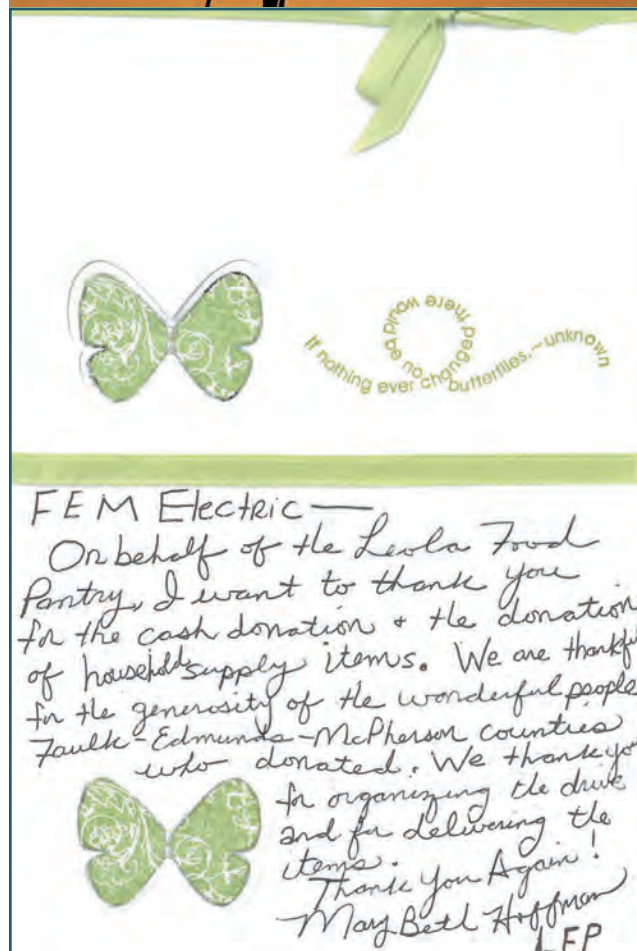 If nothing ever changed there would be no butterflies. ~unknown
FEM Electric—
On behalf of the Leola Food
Pantry, I want to thank you
for the cash donation + the donation
of household supply items. We are thankful
for the generosity of the wonderful people
Faulk-Edmunds-McPherson counties
who donated. We thank you
for organizing the drive
and for delivering the
items.
Thank you Again!
Mary Beth Hoffman
LFP